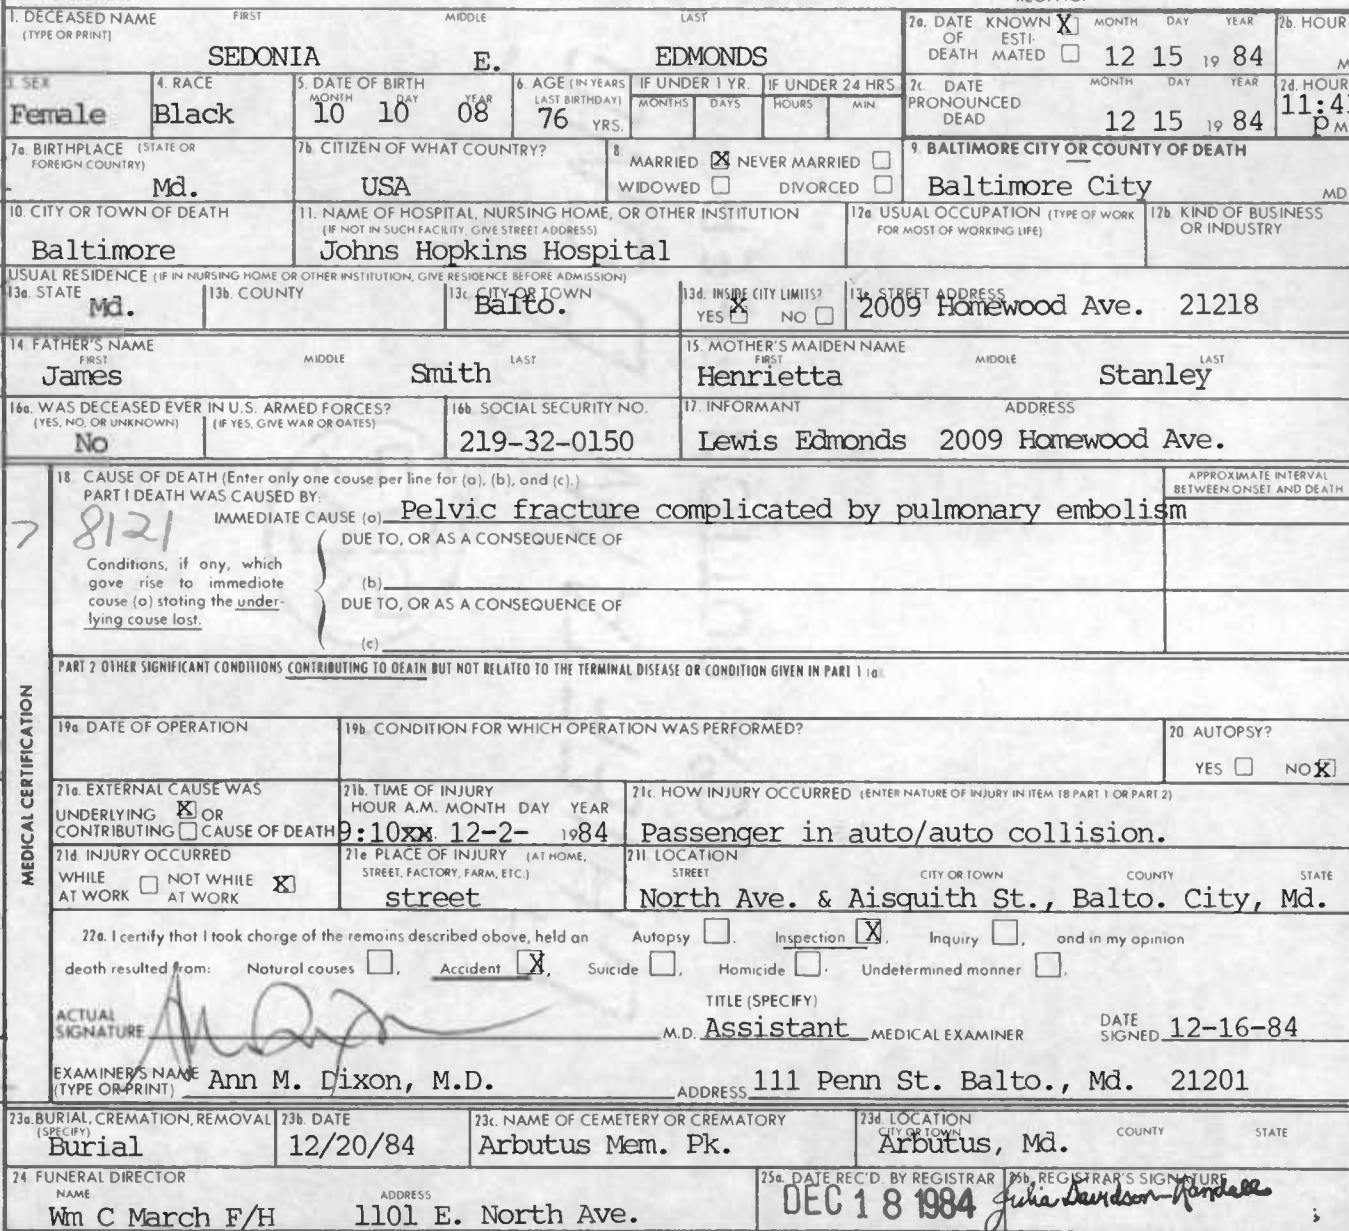 1. DECEASED NAME FIRST MIDDLE LAST
(TYPE OR PRINT)
SEDONIA E. EDMONDS
2a. DATE OF DEATH KNOWN X ESTIMATED MONTH DAY YEAR
12 15 19 84
2b. HOUR
M
3. SEX
Female
4. RACE
Black
5. DATE OF BIRTH
MONTH DAY YEAR
10 10 08
6. AGE (IN YEARS LAST BIRTHDAY)
76 YRS.
IF UNDER 1 YR. IF UNDER 24 HRS
MONTHS DAYS HOURS MIN.
2c. DATE PRONOUNCED DEAD MONTH DAY YEAR
12 15 19 84
2d. HOUR
P M
7a. BIRTHPLACE (STATE OR FOREIGN COUNTRY)
Md.
7b. CITIZEN OF WHAT COUNTRY?
USA
8. MARRIED X NEVER MARRIED
WIDOWED DIVORCED
9. BALTIMORE CITY OR COUNTY OF DEATH
Baltimore City MD
10. CITY OR TOWN OF DEATH
Baltimore
11. NAME OF HOSPITAL, NURSING HOME, OR OTHER INSTITUTION
(IF NOT IN SUCH FACILITY, GIVE STREET ADDRESS)
Johns Hopkins Hospital
12a USUAL OCCUPATION (TYPE OF WORK FOR MOST OF WORKING LIFE)
12b. KIND OF BUSINESS OR INDUSTRY
USUAL RESIDENCE (IF IN NURSING HOME OR OTHER INSTITUTION, GIVE RESIDENCE BEFORE ADMISSION)
13a. STATE
Md.
13b. COUNTY
13c. CITY OR TOWN
Balto.
13d. INSIDE CITY LIMITS?
YES X NO
13e. STREET ADDRESS
2009 Homewood Ave. 21218
14. FATHER'S NAME
FIRST MIDDLE LAST
James Smith
15. MOTHER'S MAIDEN NAME
FIRST MIDDLE LAST
Henrietta Stanley
16a. WAS DECEASED EVER IN U.S. ARMED FORCES?
(YES, NO, OR UNKNOWN) (IF YES, GIVE WAR OR DATES)
No
16b. SOCIAL SECURITY NO.
219-32-0150
17. INFORMANT ADDRESS
Lewis Edmonds 2009 Homewood Ave.
MEDICAL CERTIFICATION
18. CAUSE OF DEATH (Enter only one cause per line for (a), (b), and (c).)
PART I DEATH WAS CAUSED BY:
APPROXIMATE INTERVAL BETWEEN ONSET AND DEATH
8121
IMMEDIATE CAUSE (a) Pelvic fracture complicated by pulmonary embolism
DUE TO, OR AS A CONSEQUENCE OF
Conditions, if any, which
gave rise to immediate
cause (a) stating the under-
lying cause last.
(b)
DUE TO, OR AS A CONSEQUENCE OF
(c)
PART 2 OTHER SIGNIFICANT CONDITIONS CONTRIBUTING TO DEATH BUT NOT RELATED TO THE TERMINAL DISEASE OR CONDITION GIVEN IN PART 1 (a)
19a DATE OF OPERATION
19b. CONDITION FOR WHICH OPERATION WAS PERFORMED?
20. AUTOPSY?
YES NO X
21a. EXTERNAL CAUSE WAS
UNDERLYING X OR
CONTRIBUTING CAUSE OF DEATH
21b. TIME OF INJURY
HOUR A.M. MONTH DAY YEAR
9:10xx. 12-2- 1984
21c. HOW INJURY OCCURRED (ENTER NATURE OF INJURY IN ITEM 18 PART 1 OR PART 2)
Passenger in auto/auto collision.
21d INJURY OCCURRED
WHILE AT WORK NOT WHILE AT WORK X
21e PLACE OF INJURY (AT HOME, STREET, FACTORY, FARM, ETC.)
street
21f. LOCATION
STREET CITY OR TOWN COUNTY STATE
North Ave. & Aisquith St., Balto. City, Md.
22a. I certify that I took charge of the remains described above, held an Autopsy . Inspection X, Inquiry , and in my opinion
death resulted from: Natural causes , Accident X, Suicide , Homicide . Undetermined manner .
ACTUAL SIGNATURE
M.D.
TITLE (SPECIFY)
Assistant MEDICAL EXAMINER
DATE SIGNED 12-16-84
EXAMINER'S NAME
(TYPE OR PRINT) Ann M. Dixon, M.D.
ADDRESS 111 Penn St. Balto., Md. 21201
23a. BURIAL, CREMATION, REMOVAL
(SPECIFY)
Burial
23b. DATE
12/20/84
23c. NAME OF CEMETERY OR CREMATORY
Arbutus Mem. Pk.
23d. LOCATION
CITY OR TOWN COUNTY STATE
Arbutus, Md.
24 FUNERAL DIRECTOR
NAME ADDRESS
Wm C March F/H 1101 E. North Ave.
25a. DATE REC'D. BY REGISTRAR
DEC 18 1984
25b. REGISTRAR'S SIGNATURE
Julia Davidson-Randall